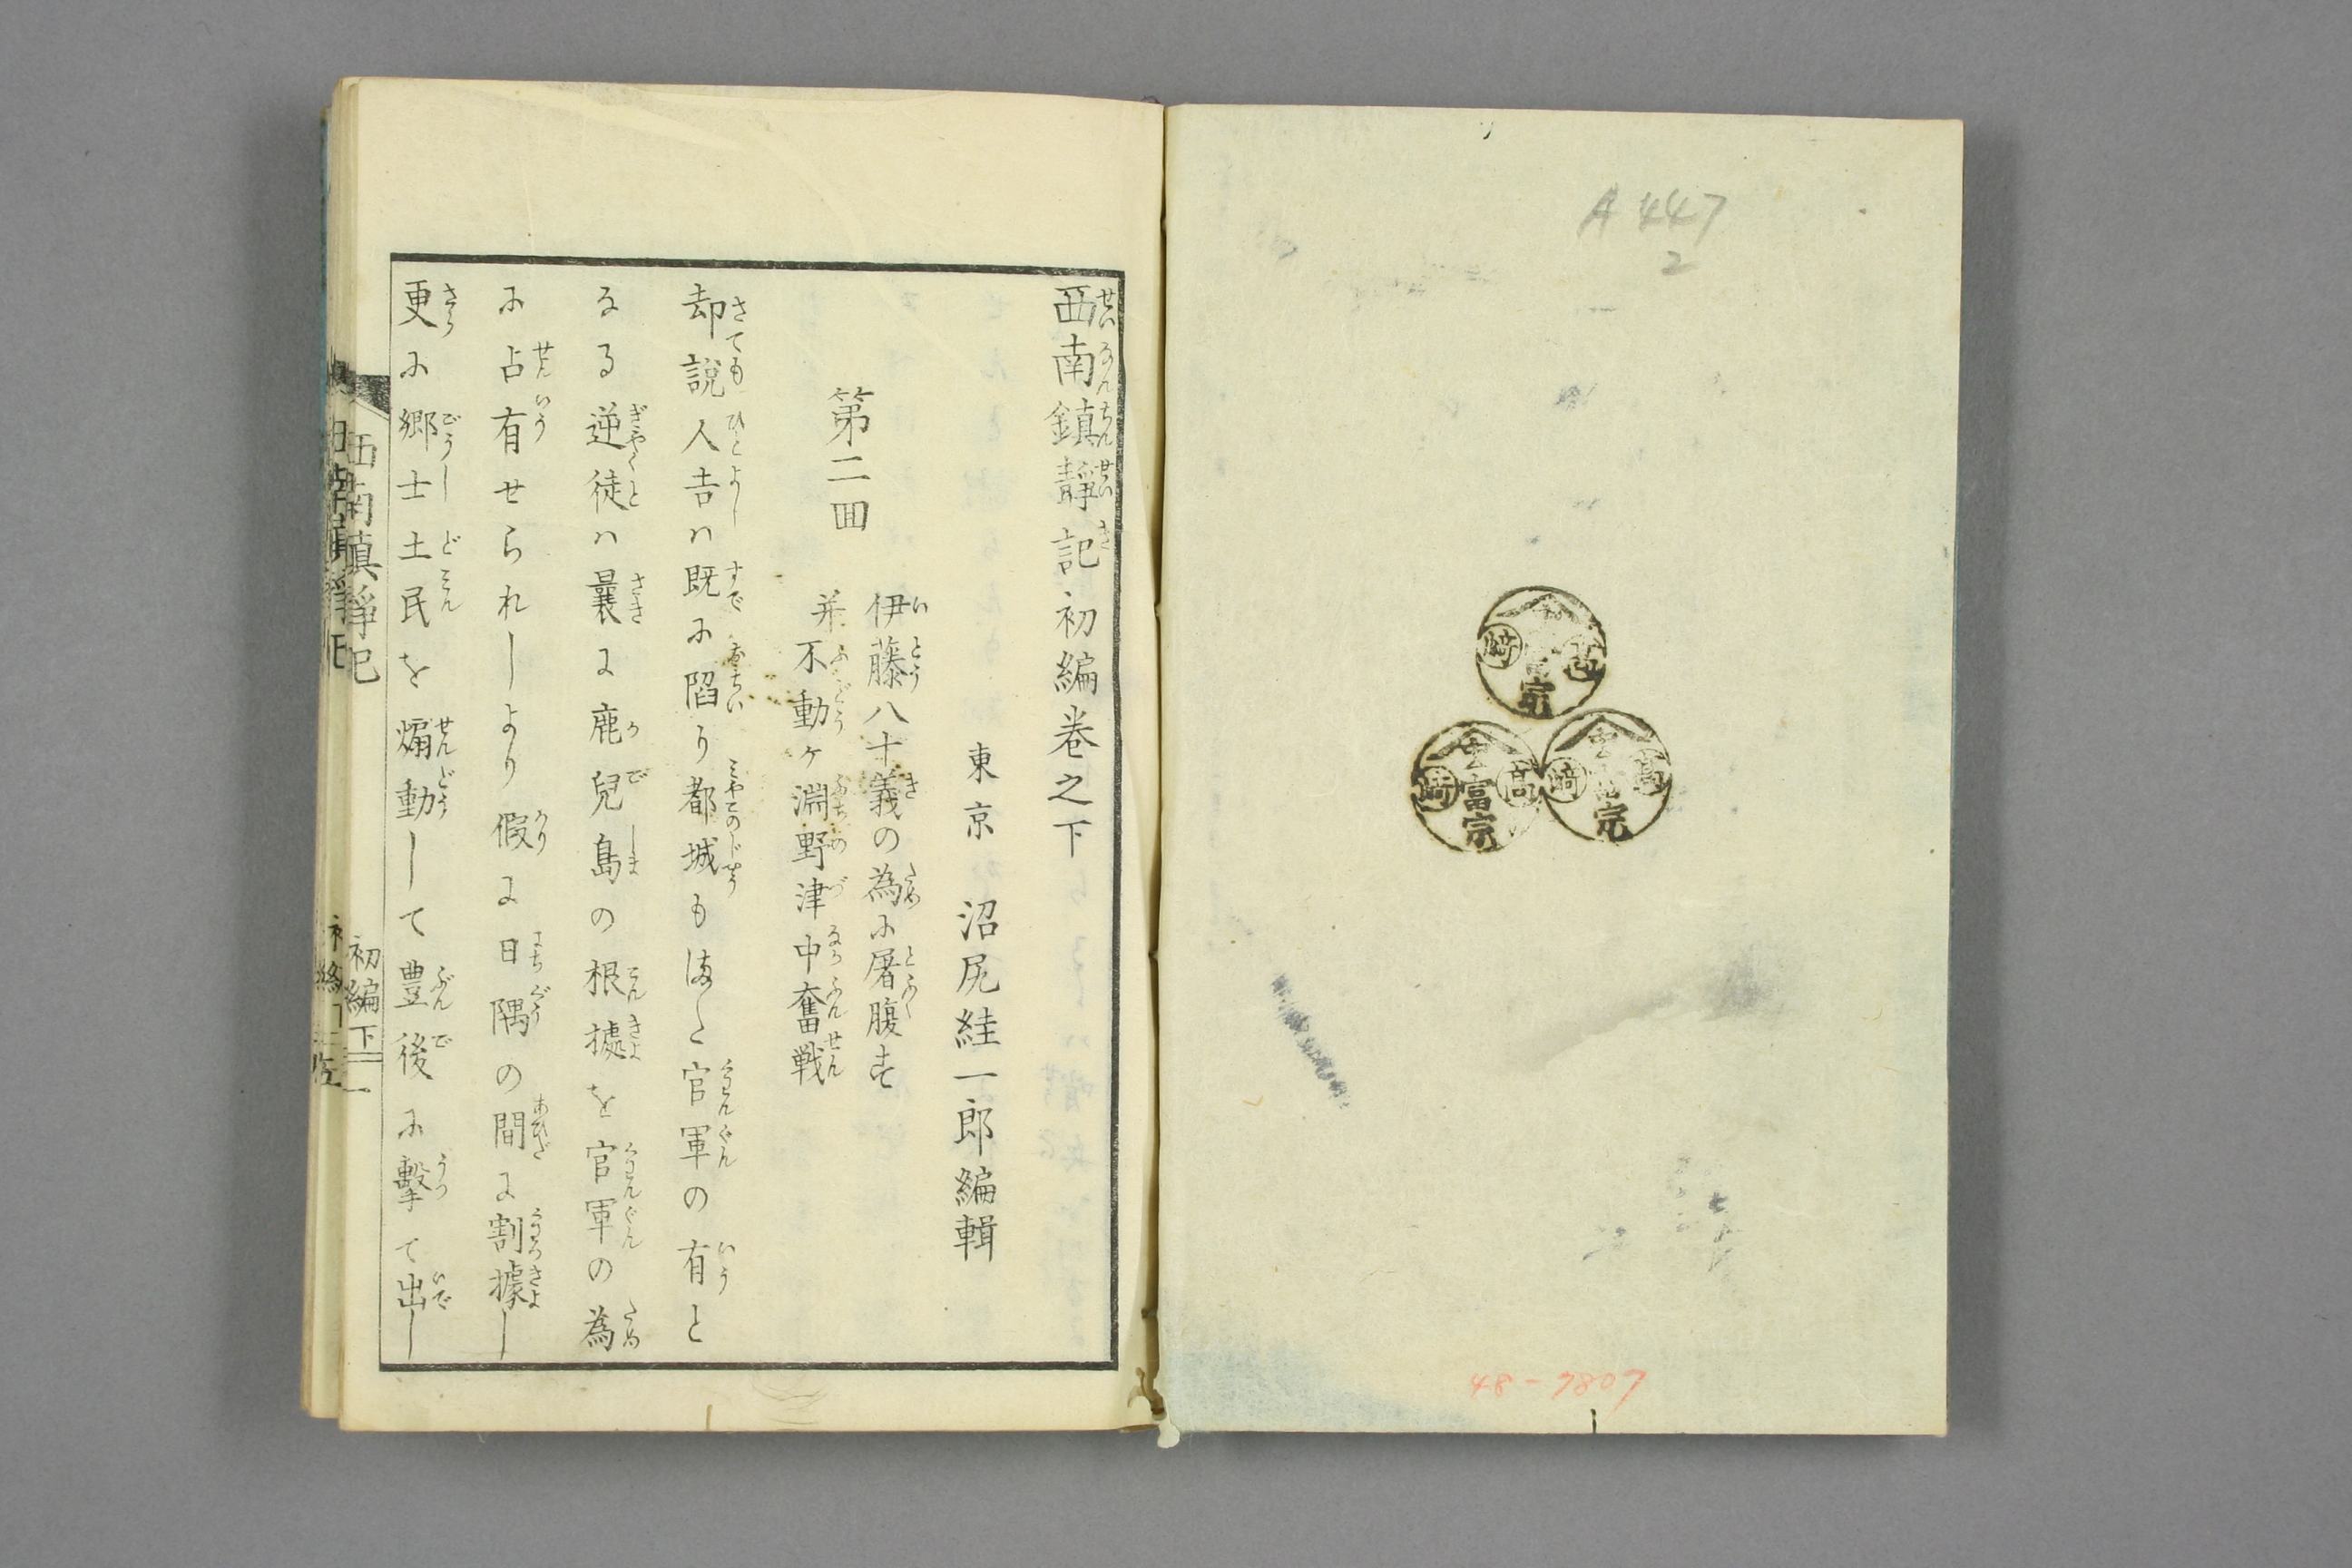 A 447
2
高
﨑
富
宗
48-7807
西南鎮靜記初編巻之下
東京 沼尻絓一郎編輯
第二囬
伊藤八十義の為に屠腹す
并不動ヶ淵野津中奮戦
却説人吉ハ既に陷り都城もまた官軍の有と
なる逆徒ハ曩に鹿兒島の根據を官軍の為
に占有せられしより假に日隅の間に割據し
更に郷士土民を煽動して豊後に擊て出し
西南鎮靜記 初編下 一